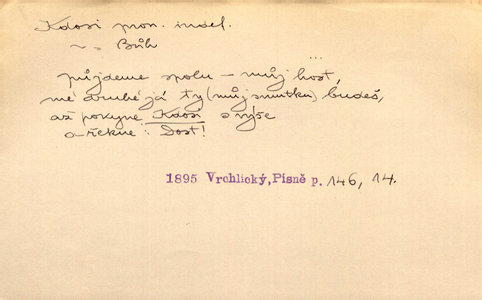 Kdosi pron. indef.
~ ~ Bůh
půjdeme spolu – můj host,
mé druhé já ty (můj smutku) budeš,
až pokyne Kdosi s výše
a řekne: Dost!
1895 Vrchlický, Písně p. 146, 14.